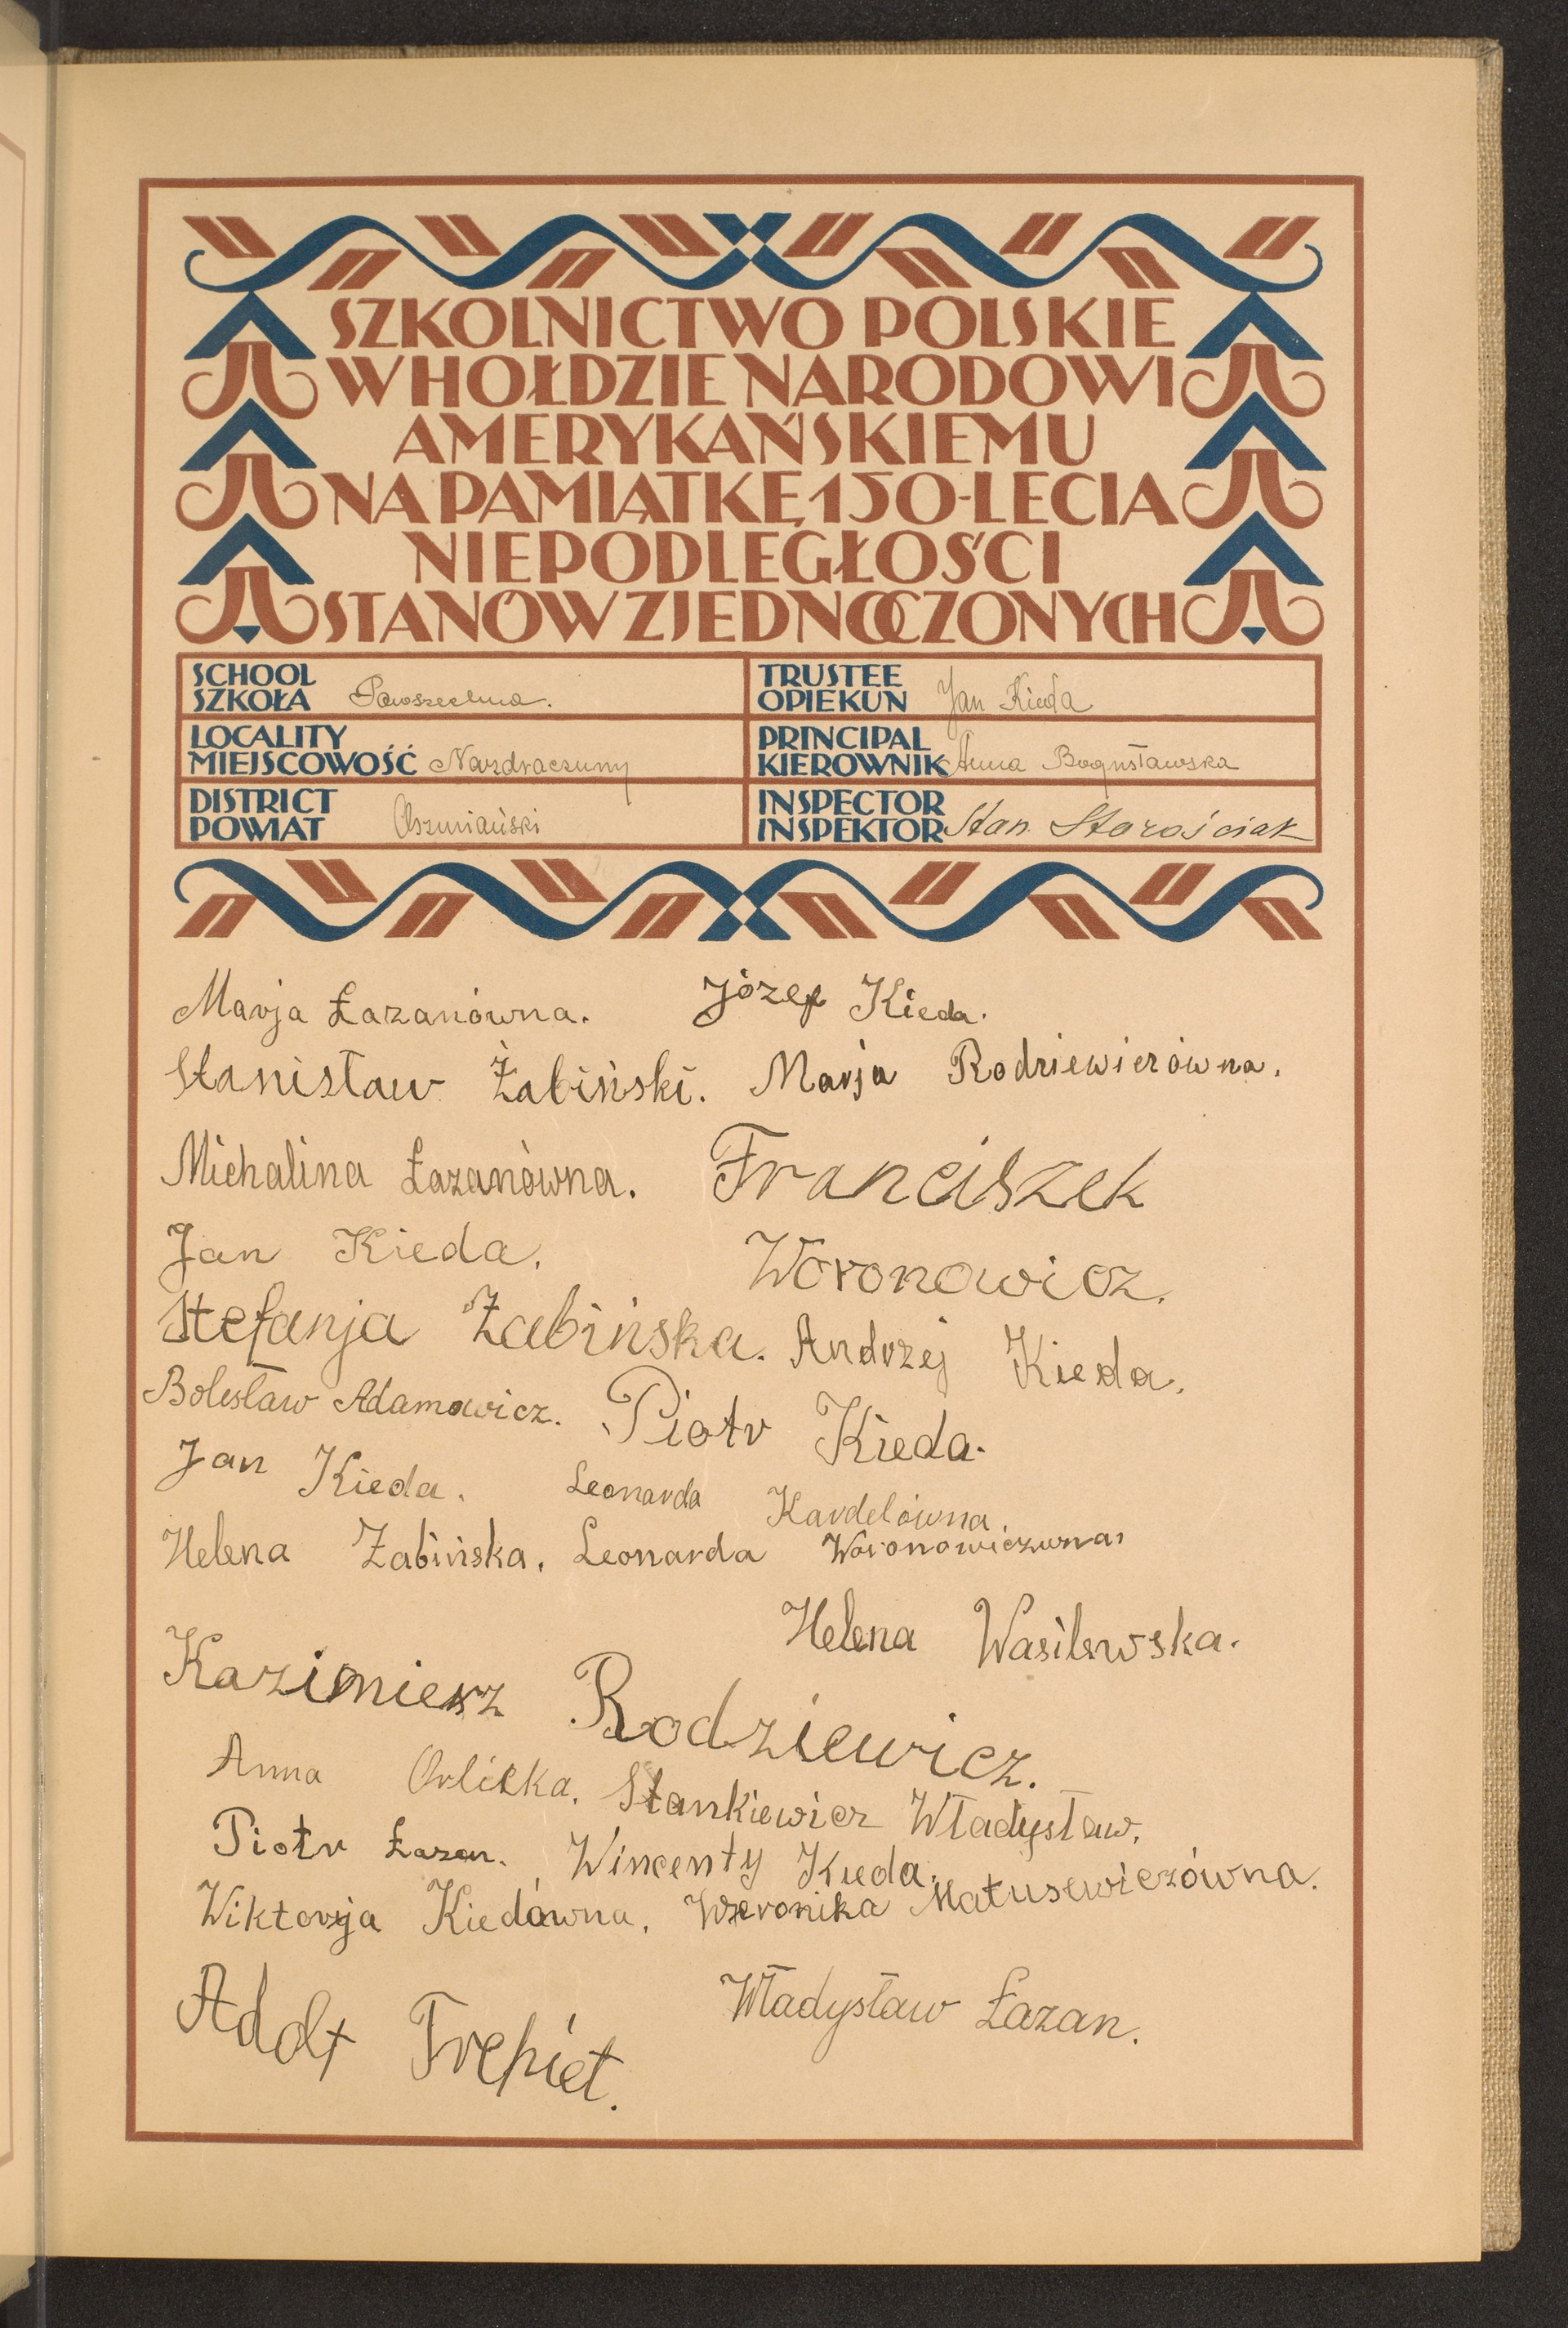 SZKOLNICTWO POLSKIE
W HOŁDZIE NARODOWI
AMERYKAŃSKIEMU
NA PAMIĄTKĘ 150-LECIA
NIEPODLEGŁOŚCI
STANÓW ZJEDNOCZONYCH
SCHOOL
SZKOŁA Powszechna.
TRUSTEE
OPIEKUN Jan Kieda
LOCALITY
MIEJSCOWOŚĆ Nazdraczuny
PRINCIPAL
KIEROWNIK Anna Bogusławska
DISTRICT
POWIAT Oszmiański
INSPECTOR
INSPEKTOR Stan. Starościak
Marja Łazanówna. Józef Kieda.
Stanisław Żabiński. Marja Rodziewiczówna.
Michalina Łazanówna. Franciszek
Jan Kieda. Woronowicz.
Stefanja Żabińska. Andrzej Kieda.
Bolesław Adamowicz. Piotr Kieda.
Jan Kieda. Leonarda Kardelówna.
Helena Żabińska. Leonarda Woronowiczuwna,
Helena Wasilewska.
Kazimierz Rodziewicz.
Anna Orlicka. Stankiewicz Władysław.
Piotr Łazan. Wincenty Kieda.
Wiktorja Kiedówna. Weronika Matusewiczówna.
Adolf Trepiet. Władysław Łazan.